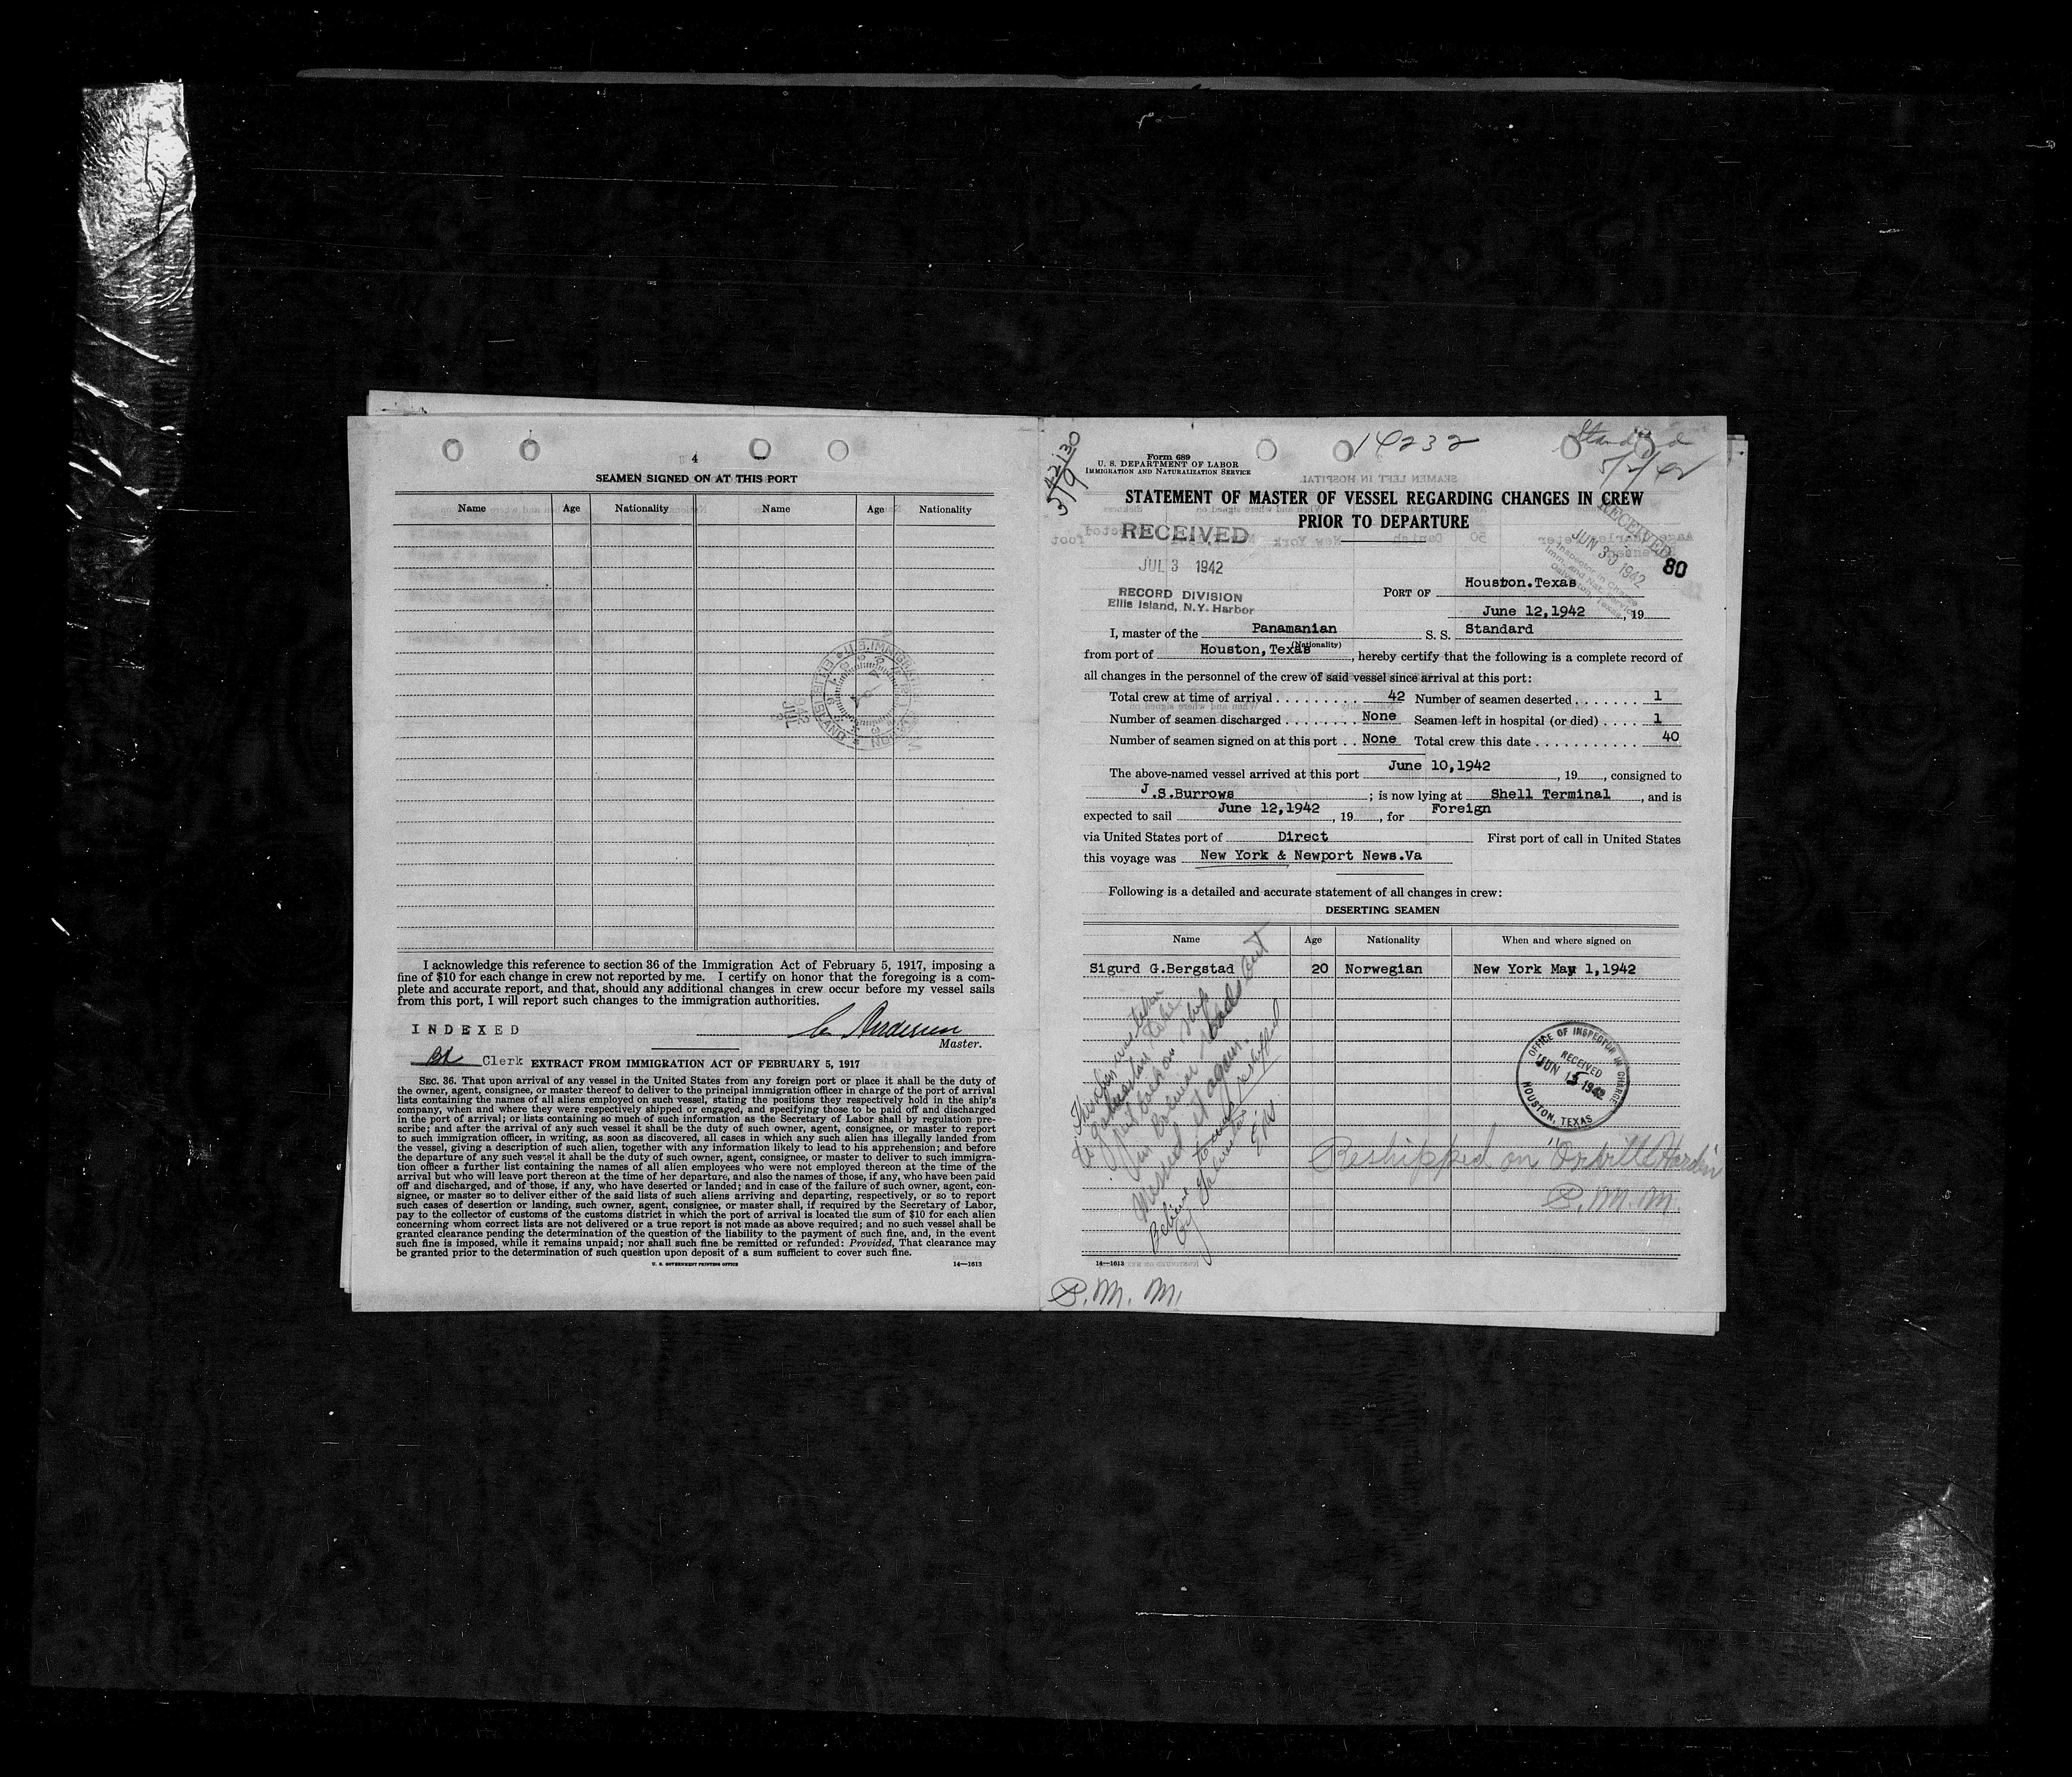 4
SEAMEN SIGNED ON AT THIS PORT
Name Age Nationality Name Age Nationality
I acknowledge this reference to section 36 of the Immigration Act of February 5, 1917, imposing a
fine of $10 for each change in crew not reported by me. I certify on honor that the foregoing is a com-
plete and accurate report, and that, should any additional changes in crew occur before my vessel sails
from this port, I will report such changes to the immigration authorities.
INDEXED
Master.
Clerk EXTRACT FROM IMMIGRATION ACT OF FEBRUARY 5, 1917
SEC. 36. That upon arrival of any vessel in the United States from any foreign port or place it shall be the duty of
the owner, agent, consignee, or master thereof to deliver to the principal immigration officer in charge of the port of arrival
lists containing the names of all aliens employed on such vessel, stating the positions they respectively hold in the ship's
company, when and where they were respectively shipped or engaged, and specifying those to be paid off and discharged
in the port of arrival; or lists containing so much of such information as the Secretary of Labor shall by regulation pre-
scribe; and after the arrival of any such vessel it shall be the duty of such owner, agent, consignee, or master to report
to such immigration officer, in writing, as soon as discovered, all cases in which any such alien has illegally landed from
the vessel, giving a description of such alien, together with any information likely to lead to his apprehension; and before
the departure of any such vessel it shall be the duty of such owner, agent, consignee, or master to deliver to such immigra-
tion officer a further list containing the names of all alien employees who were not employed thereon at the time of the
arrival but who will leave port thereon at the time of her departure, and also the names of those, if any, who have been paid
off and discharged, and of those, if any, who have deserted or landed; and in case of the failure of such owner, agent, con-
signee, or master so to deliver either of the said lists of such aliens arriving and departing, respectively, or so to report
such cases of desertion or landing, such owner, agent, consignee, or master shall, if required by the Secretary of Labor,
pay to the collector of customs of the customs district in which the port of arrival is located the sum of $10 for each alien
concerning whom correct lists are not delivered or a true report is not made as above required; and no such vessel shall be
granted clearance pending the determination of the question of the liability to the payment of such fine, and, in the event
such fine is imposed, while it remains unpaid; nor shall such fine be remitted or refunded: Provided, That clearance may
be granted prior to the determination of such question upon deposit of a sum sufficient to cover such fine.
U. S. GOVERNMENT PRINTING OFFICE 14—1613
14232
Form 689
U. S. DEPARTMENT OF LABOR
IMMIGRATION AND NATURALIZATION SERVICE
STATEMENT OF MASTER OF VESSEL REGARDING CHANGES IN CREW
PRIOR TO DEPARTURE
RECEIVED
JUL 3 1942
RECORD DIVISION
Ellis Island, N.Y. Harbor
RECEIVED
JUN 30 1942
Inspector in Charge
80
PORT OF Houston.Texas
June 12,1942, 19
I, master of the Panamanian S. S. Standard
(Nationality)
from port of Houston,Texas, hereby certify that the following is a complete record of
all changes in the personnel of the crew of said vessel since arrival at this port:
Total crew at time of arrival 42 Number of seamen deserted 1
Number of seamen discharged None Seamen left in hospital (or died) 1
Number of seamen signed on at this port None Total crew this date 40
The above-named vessel arrived at this port June 10,1942, 19, consigned to
J.S.Burrows; is now lying at Shell Terminal, and is
expected to sail June 12,1942, 19, for Foreign
via United States port of Direct First port of call in United States
this voyage was New York & Newport News.Va
Following is a detailed and accurate statement of all changes in crew:
DESERTING SEAMEN
Name Age Nationality When and where signed on
Sigurd G.Bergstad 20 Norwegian New York May 1,1942
OFFICE OF INSPECTOR IN CHARGE
RECEIVED
JUN 15 1942
HOUSTON, TEXAS
Reshipped on "Orville Hardin
P.M.M.
14—1613
P.M.M.